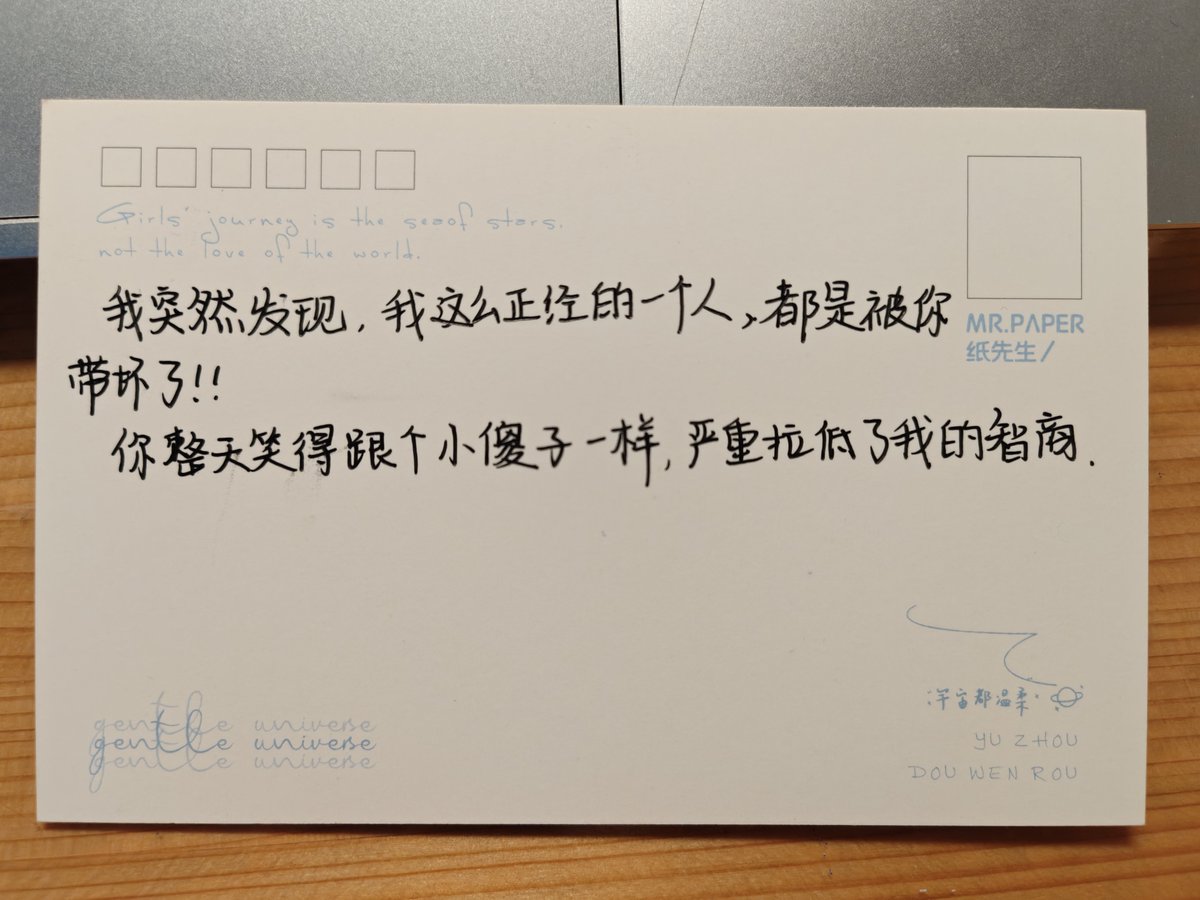 Girls' journey is the seaof stars.
not the love of the world.
我突然发现,我这么正经的一个人,都是被你
带坏了!!
你整天笑得跟个小傻子一样,严重拉低了我的智商.
MR.PAPER
纸先生/
gentle universe
gentle universe
gentle universe
宇宙都温柔
YU ZHOU
DOU WEN ROU